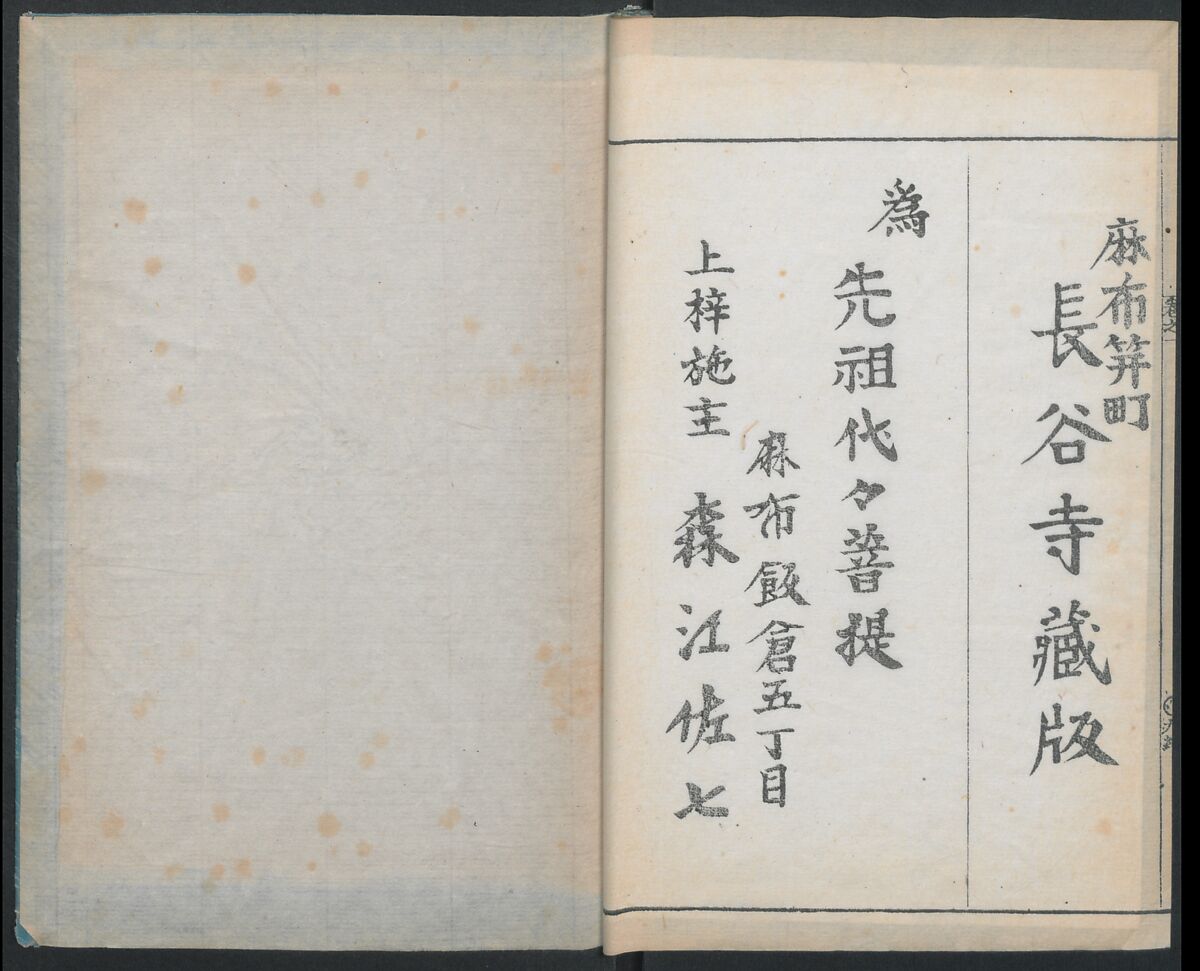 麻布笄町
長谷寺藏版
為
先祖代々菩提
麻布飯倉五丁目
上梓施主 森江佐七